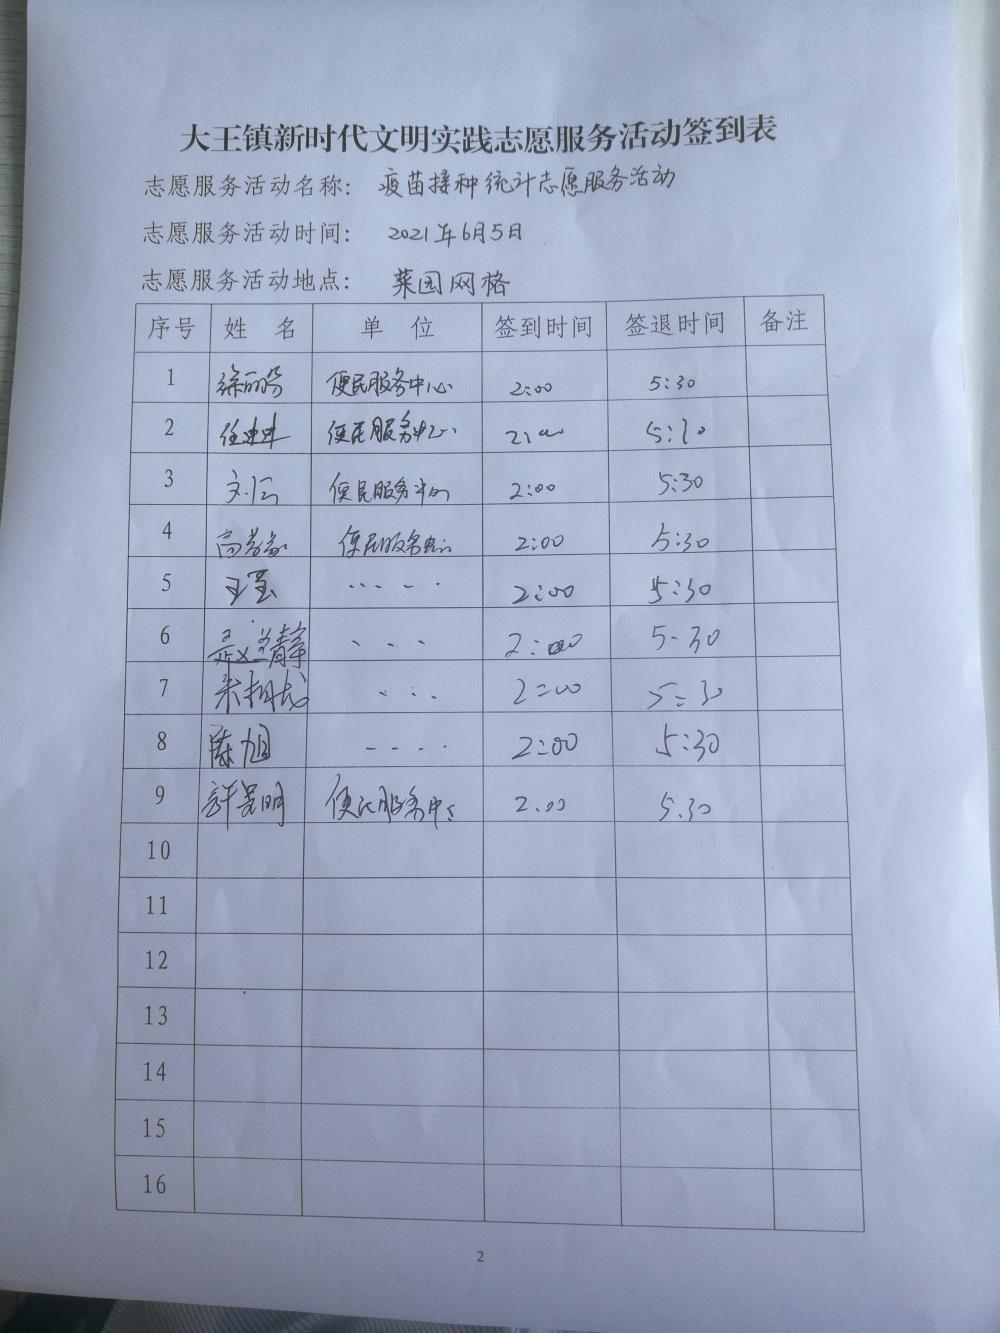 大王镇新时代文明实践志愿服务活动签到表
志愿服务活动名称： 疫苗接种统计志愿服务活动
志愿服务活动时间： 2021年6月5日
志愿服务活动地点： 菜园网格
序号 姓 名 单 位 签到时间 签退时间 备注
1 徐丽芬 便民服务中心 2:00 5:30
2 便民服务中心 5:30
3 便民服务中心 2:00 5:30
4 便民服务中心 2:00 5:30
5 2:00 5:30
6 2:00 5:30
7 2:00 5:30
8 陈旭 2:00 5:30
9 许景明 便民服务中心 2.00 5.30
10
11
12
13
14
15
16
2